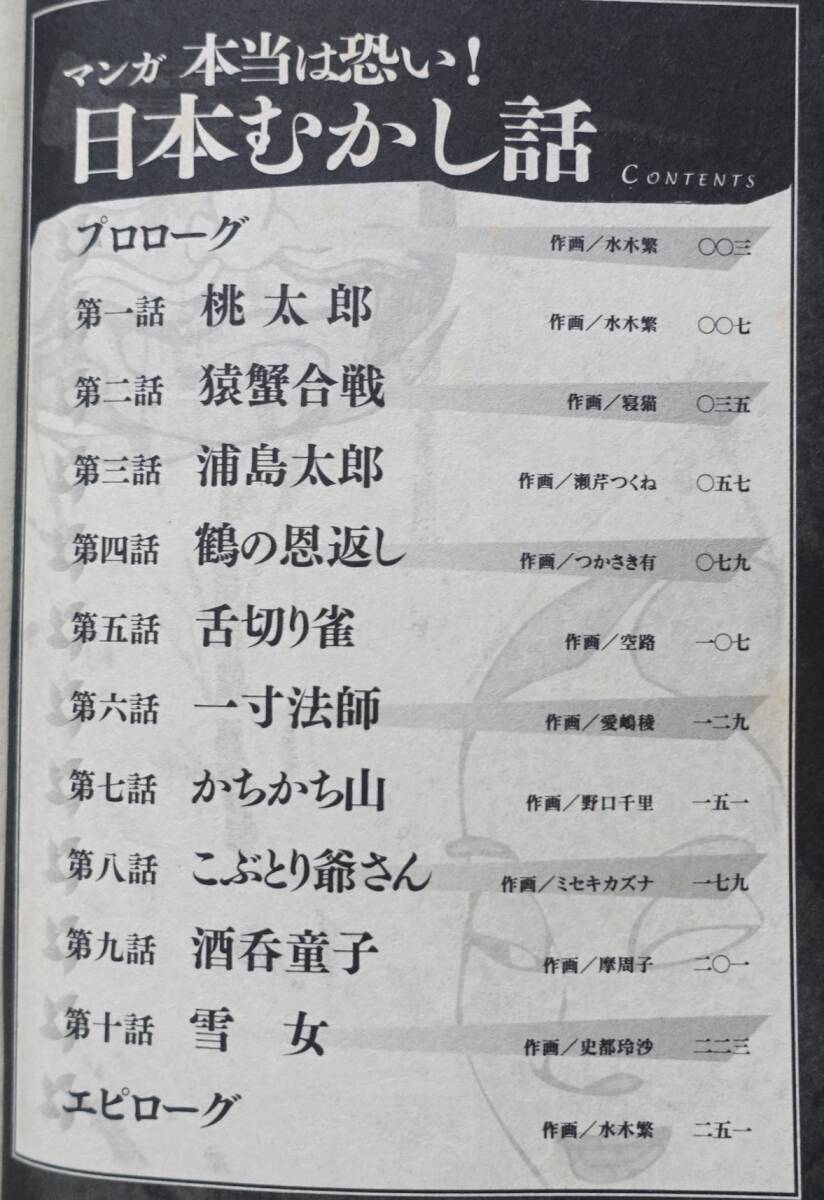 マンガ 本当は恐い！
日本むかし話 CONTENTS
プロローグ 作画／水木繁 〇〇三
第一話 桃太郎 作画／水木繁 〇〇七
第二話 猿蟹合戦 作画／寝猫 〇三五
第三話 浦島太郎 作画／瀬芹つくね 〇五七
第四話 鶴の恩返し 作画／つかさき有 〇七九
第五話 舌切り雀 作画／空路 一〇七
第六話 一寸法師 作画／愛嶋稜 一二九
第七話 かちかち山 作画／野口千里 一五一
第八話 こぶとり爺さん 作画／ミセキカズナ 一七九
第九話 酒呑童子 作画／摩周子 二〇一
第十話 雪女 作画／史都玲沙 二二三
エピローグ 作画／水木繁 二五一